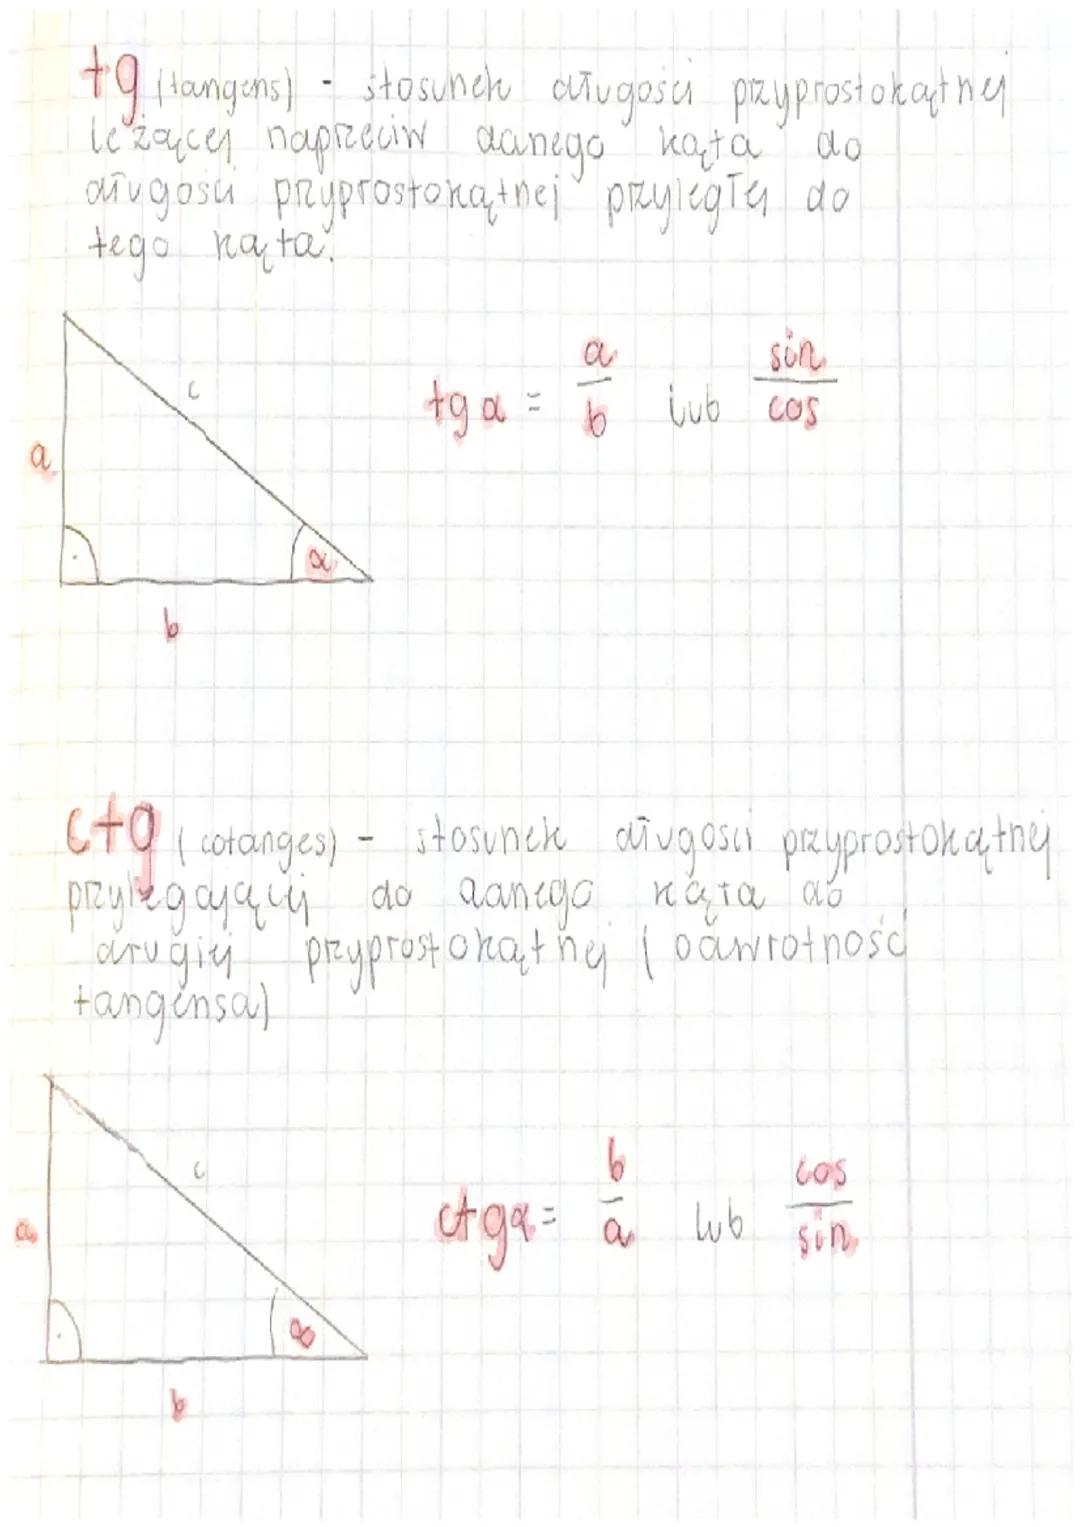 tg (tangens) - stosunek długości przyprostokątnej
leżącej naprzeciw danego kąta do
długości przyprostokątnej przyległej do
tego kąta.
c
a
α
b
tg α = a/b lub sin/cos
ctg (cotanges) - stosunek długości przyprostokątnej
przylegającej do danego kąta do
drugiej przyprostokątnej (odwrotność
tangensa)
c
a
α
b
ctgα = b/a lub cos/sin